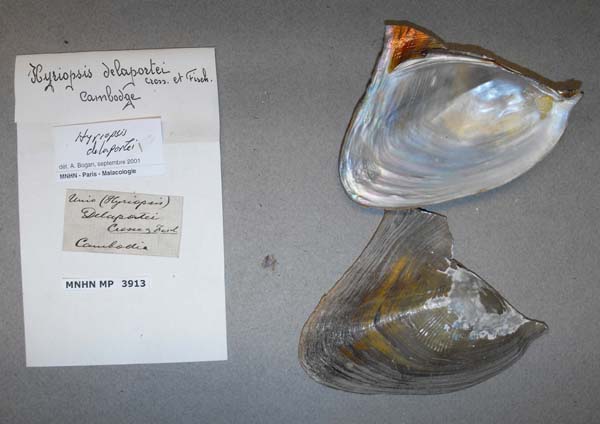 Hyriopsis delaportei
Cross. et Fisch.
Cambodge
Hyriopsis
delaportei
det. A. Bogan, septembre 2001
MNHN - Paris - Malacologie
Unio (Hyriopsis)
Delaportei
Crosse & Fisch
Cambodia
MNHN MP 3913